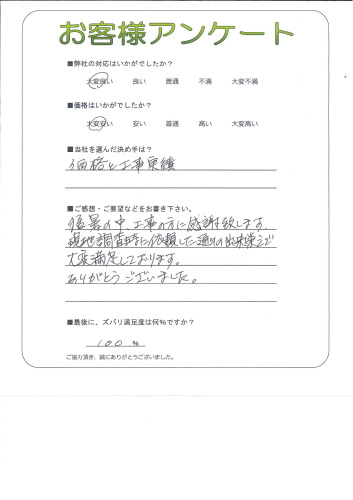 お客様アンケート
■弊社の対応はいかがでしたか？
大変良い 良い 普通 不満 大変不満
■価格はいかがでしたか？
大変安い 安い 普通 高い 大変高い
■当社を選んだ決め手は？
価格と工事実績
■ご感想・ご要望などをお書き下さい。
猛暑の中、工事の方に感謝致します。
現地調査時に依頼した通りの出来栄えで
大変満足しております。
ありがとうございました。
■最後に、ズバリ満足度は何％ですか？
100 %
ご協力頂き、誠にありがとうございました。